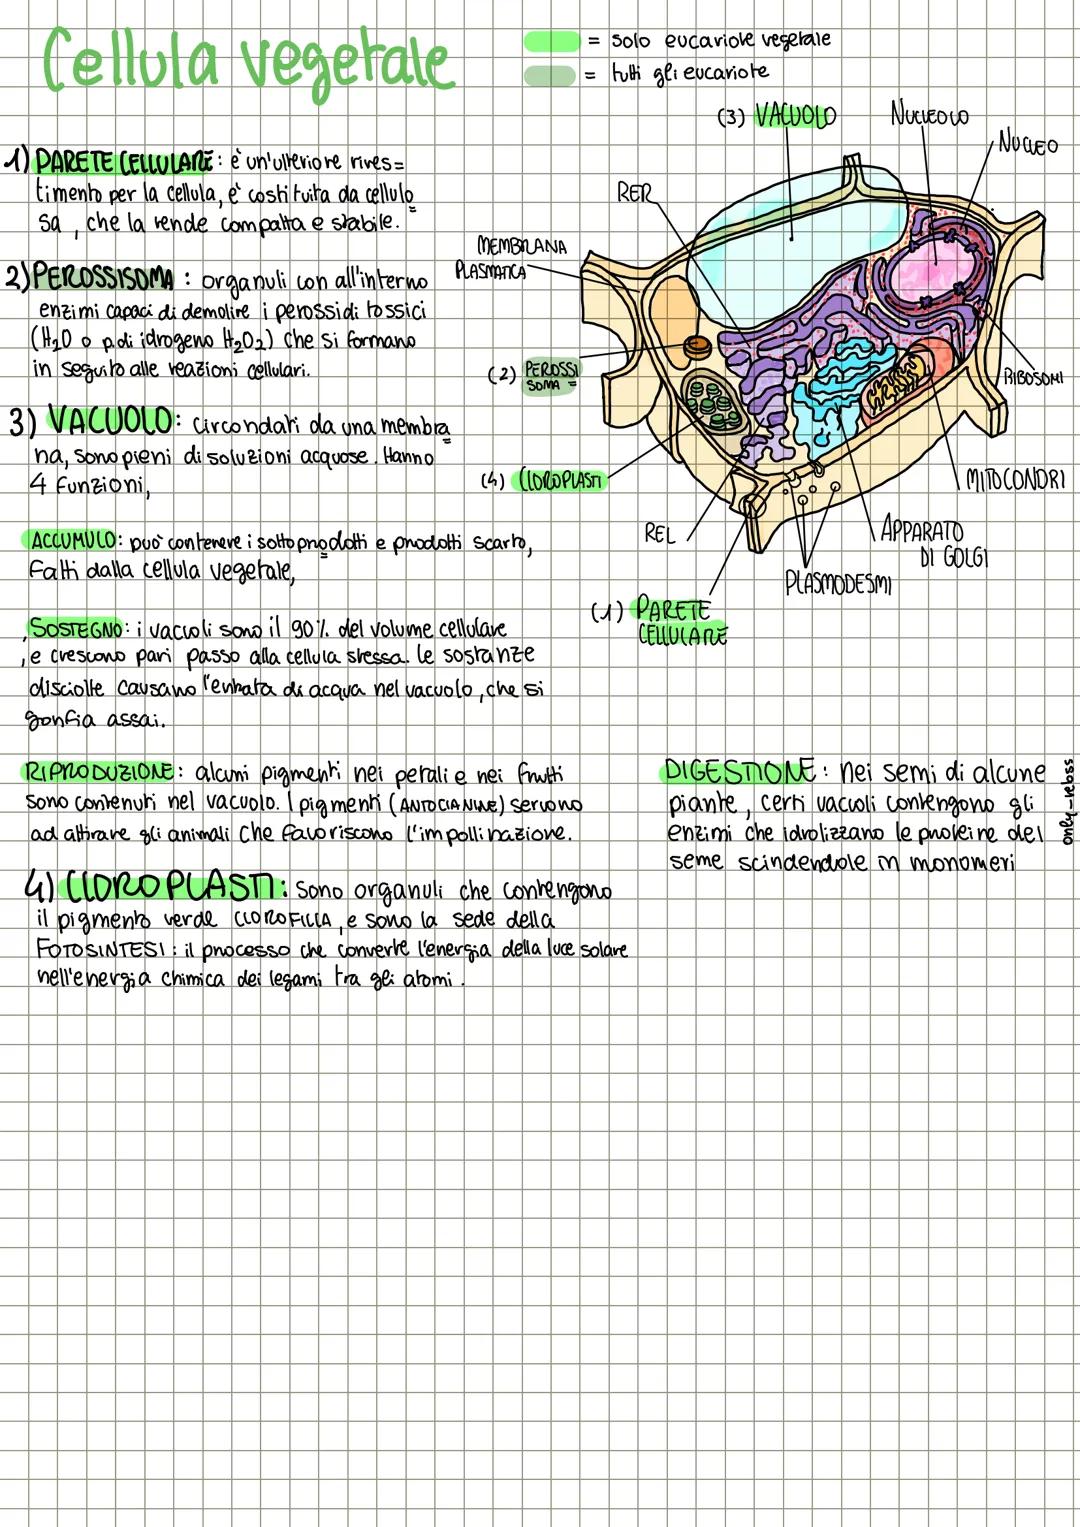 Cellula vegetale
= solo eucariote vegetale
= tutti gli eucariote
1) PARETE CELLULARE: è un'ulteriore rives=
timento per la cellula, è costituita da cellulo
sa, che la rende compatta e stabile.
2) PEROSSISOMA: organuli con all'interno
enzimi capaci di demolire i perossidi tossici
(H₂O o p. di idrogeno H₂O₂) che si formano
in seguito alle reazioni cellulari.
3) VACUOLO: circondati da una membra
na, sono pieni di soluzioni acquose. Hanno
4 funzioni,
ACCUMULO: può contenere i sottoprodotti e prodotti scarto,
fatti dalla cellula vegetale,
SOSTEGNO: i vacuoli sono il 90% del volume cellulare
, e crescono pari passo alla cellula stessa. Le sostanze
disciolte causano l'entrata di acqua nel vacuolo, che si
gonfia assai.
RIPRODUZIONE: alcuni pigmenti nei petali e nei frutti
sono contenuti nel vacuolo. I pigmenti (ANTOCIANINE) servono
ad attirare gli animali che favoriscono l'impollinazione.
DIGESTIONE: nei semi di alcune
piante, certi vacuoli contengono gli
enzimi che idrolizzano le proteine del
seme scindendole in monomeri
4) CLOROPLASTI: sono organuli che contengono
il pigmento verde CLOROFILLA, e sono la sede della
FOTOSINTESI: il processo che converte l'energia della luce solare
nell'energia chimica dei legami tra gli atomi.
(3) VACUOLO
NUCLEOLO
NUCLEO
RER
MEMBRANA
PLASMATICA
(2) PEROSSI
SOMA =
RIBOSOMI
(4) CLOROPLASTI
MITOCONDRI
REL
APPARATO
DI GOLGI
PLASMODESMI
(1) PARETE
CELLULARE
only-rebss